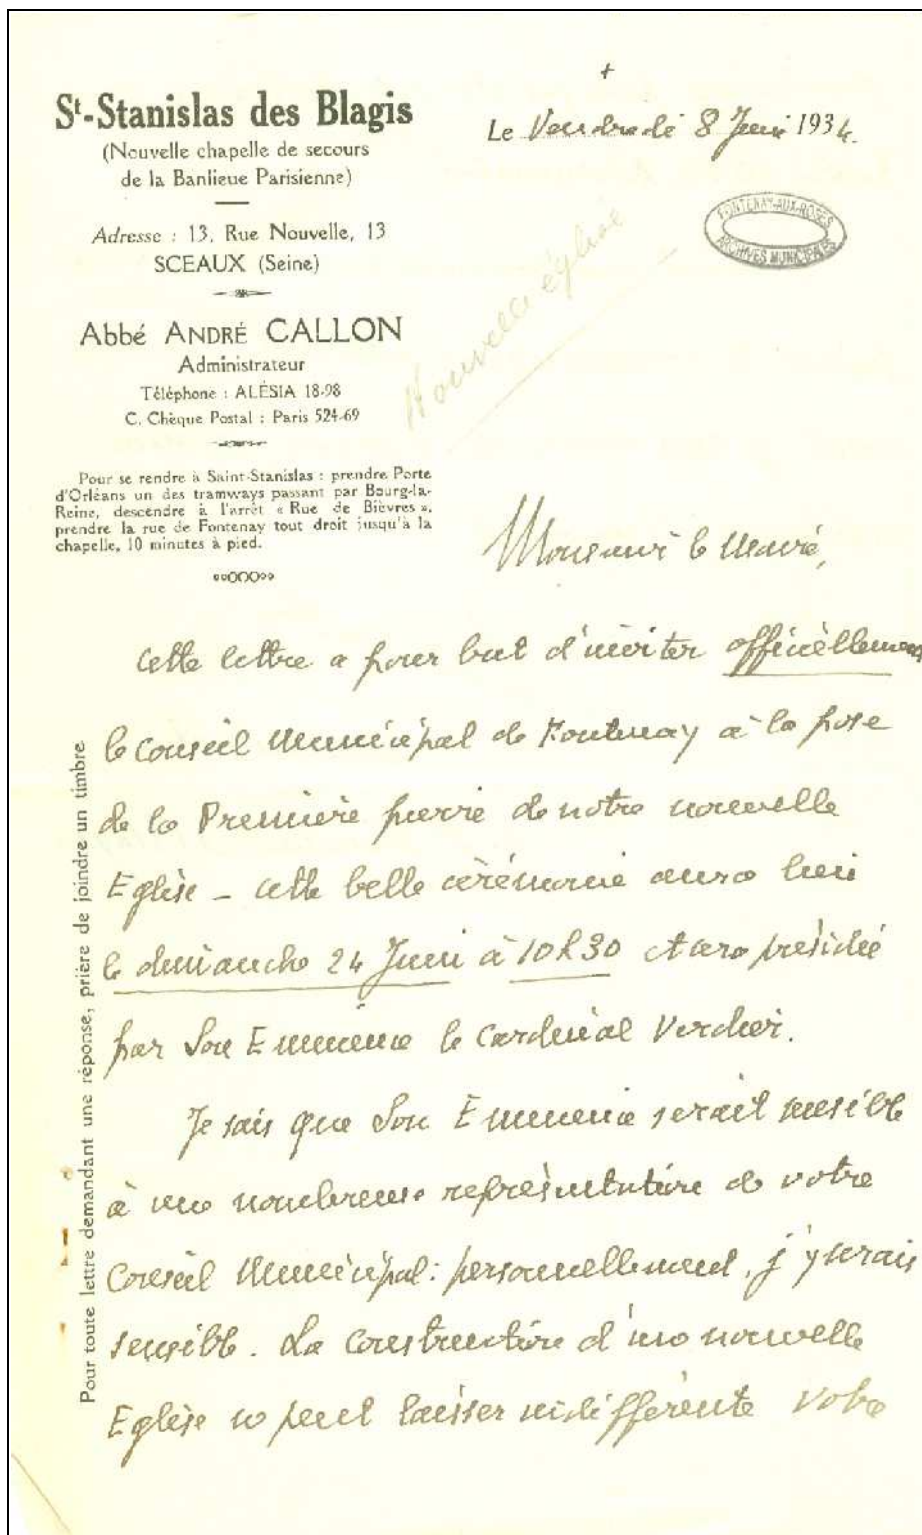 St-Stanislas des Blagis
(Nouvelle chapelle de secours
de la Banlieue Parisienne)
Adresse : 13, Rue Nouvelle, 13
SCEAUX (Seine)
Abbé ANDRÉ CALLON
Administrateur
Téléphone : ALÉSIA 18-98
C. Chèque Postal : Paris 524-69
Pour se rendre à Saint-Stanislas : prendre Porte
d'Orléans un des tramways passant par Bourg-la-
Reine, descendre à l'arrêt « Rue de Bièvres »,
prendre la rue de Fontenay tout droit jusqu'à la
chapelle, 10 minutes à pied.
+
Le Vendredi 8 Juin 1934.
FONTENAY-AUX-ROSES
ARCHIVES MUNICIPALES
Nouvelle église
Monsieur le Maire,
Cette lettre a pour but d'inviter officiellement
le Conseil Municipal de Fontenay à la pose
de la Première pierre de notre nouvelle
Eglise - cette belle cérémonie aura lieu
le dimanche 24 Juin à 10h30 et sera présidée
par Son Eminence le Cardinal Verdier.
Je sais que Son Eminence serait sensible
à une nombreuse représentation de votre
Conseil Municipal : personnellement, j'y serais
sensible. La construction d'une nouvelle
Eglise ne peut laisser indifférente votre
Pour toute lettre demandant une réponse, prière de joindre un timbre